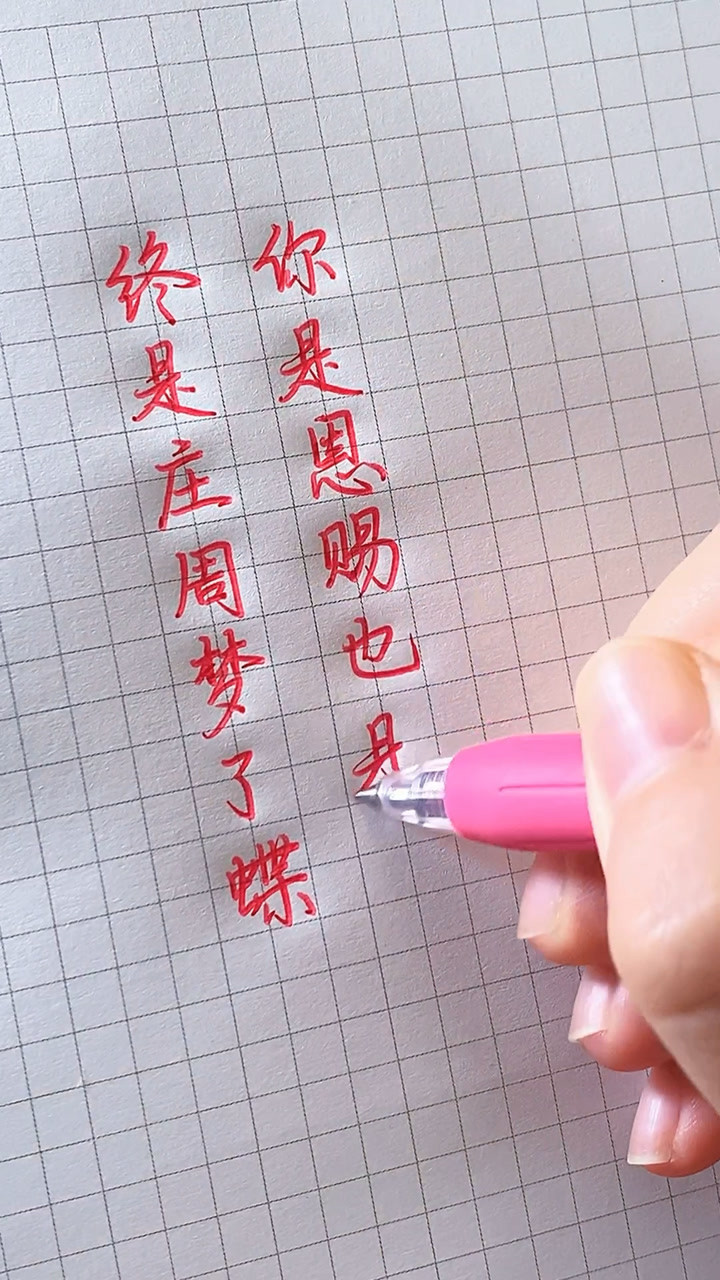 终是庄周梦了蝶
你是恩赐也是